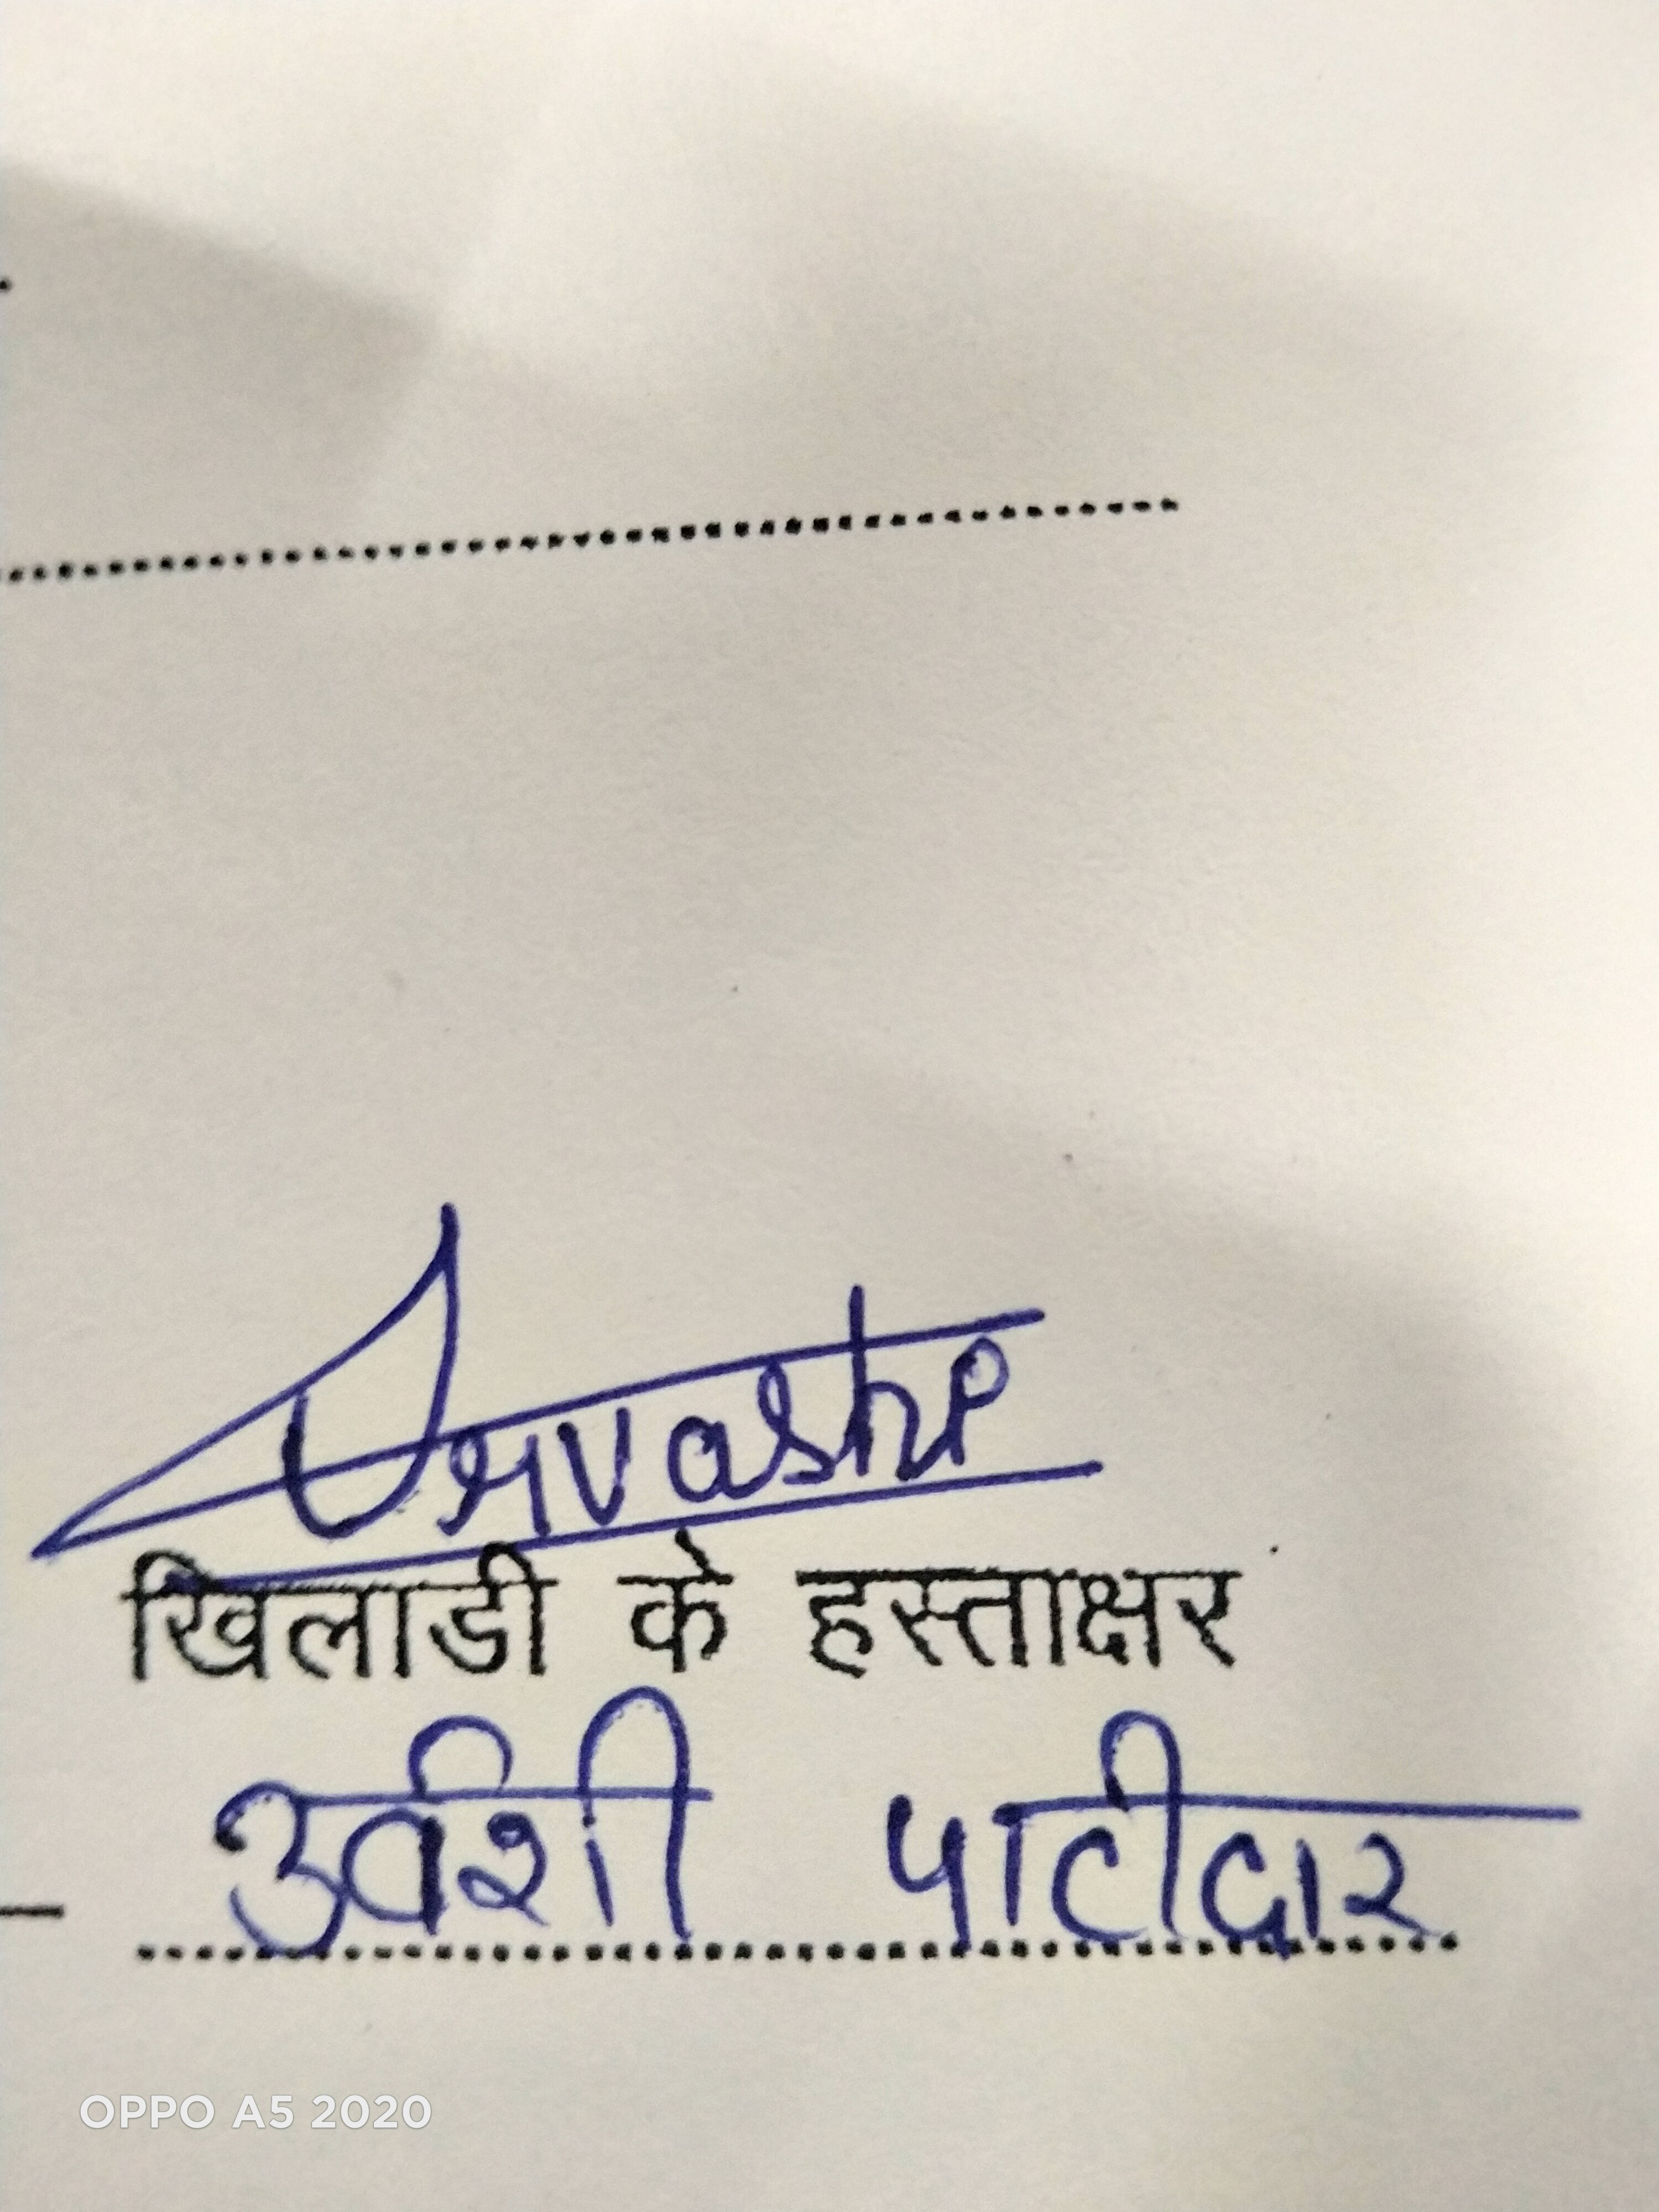 Urvashi
खिलाडी के हस्ताक्षर
उर्वशी पाटीदार
OPPO A5 2020